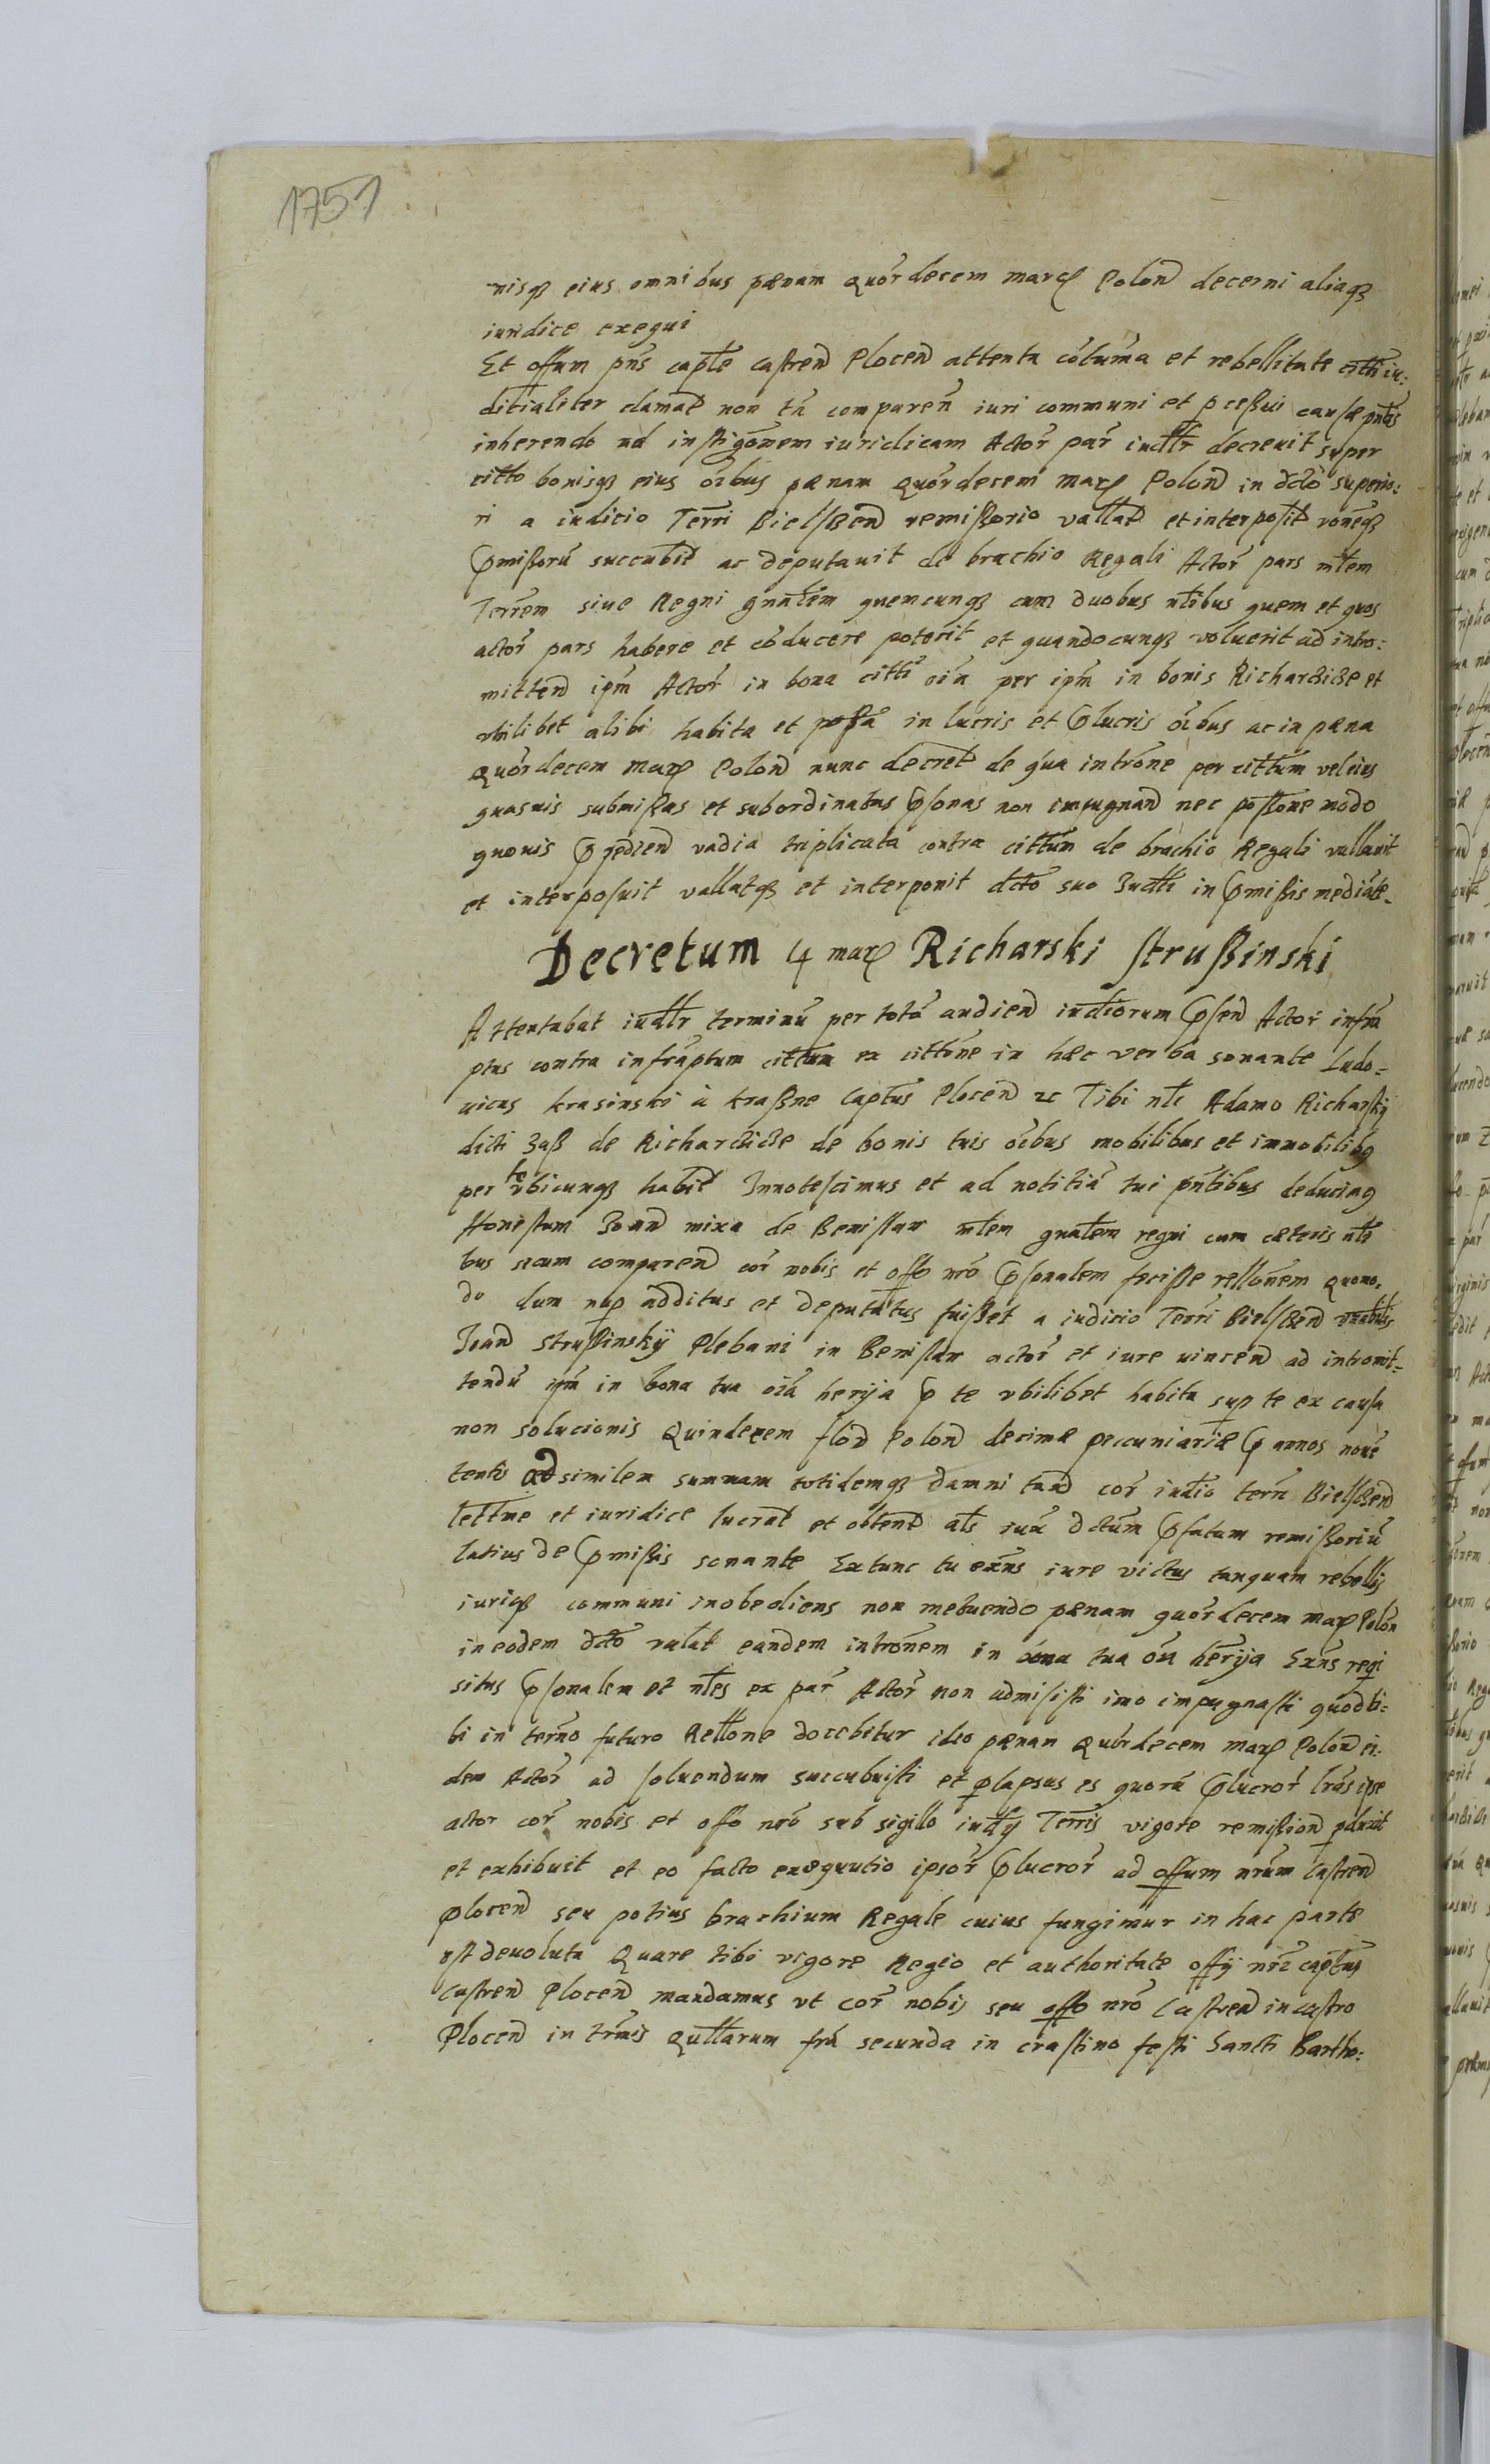 1751
nisq eius omnibus pænam quórdecem marc Polon decerni aliaq
iuridice exequi
Et offum pns captle castren Plocen attenta cótuma et rebellitate citti iu:
ditialiter clamat non tn comparen iuri communi et pceßui causæ pntis
inherendo ad instigónem iuridicam Actor par iudtr decreuit super
citto bonisq eius oíbus pænam quórdecem marc Polon in dcto superio:
ri a iudicio Terri Bielscen remißorio vallat et interposit ronéq
Pmißorú succubit ac deputauit de brachio Regali Actor pars mtem
Terrem siue Regni gnalém quemcunq cum duobus ntibus quem et quos
actor pars habere et códucere poterit et quandocunq voluerit ad intro:
mitten ipm Actor in bona citti oía per ipm in bonis Richarcicze et
vbilibet alibi habita et poßa in lucris et Plucris oíbus ac in pæna
quórdecem marc Polon nunc decret de qua introne per cittum vel eius
quasuis submißas et subordinatas Psonas non impugnan nec poßone modo
quouis Ppedien vadia triplicata contra cittum de brachio Regali vallauit
et interposuit vallatq et interponit dcto suo Iudti in Pmißis mediáte.
Decretum 4 marc Richarski strußinski
Attentabat iudtr terminú per totá audien iudiorum Psen Actor infra
ptus contra infraptum cittum ex cittóne in hæc verba sonante Ludo=
uicus krasinski à kraßne Captus Plocen etc Tibi nti Adamo Richarskj
dicti Zaß de Richarcicze de bonis tuis oíbus mobilibus et immobilibq
per te vbicunq habit Innotescimus et ad notitiá tui pntibus deducimq
Honestum Ioan mixa de Benislaw mtem gnalem regni cum cæteris nti
bus secum comparen cor nobis et offo nró Psonalem fecisse rellónem quomo.
do dum nup additus et deputatus fuißet a iudicio Terri Bielscen
Ioan Strußinskÿ Plebani in Benislaw actor et iure uincen ad intromit=
tendú ipm in bona tua oía herija P te vbilibet habita sup te ex causa
non solucionis quindecem flór Polon decimæ peccuniariæ P annos noué
tentis ad similem summam totidemq damni tand cor iudio terri Bielscen
lettme et iuridice lucrat et obtent als iuxa dctum Pfatum remißoriú
latius de Pmißis sonante Extunc tu exns iure victus tanquam rebellis
iuriq communi inobediens non metuendo pænam quórdecem marc Polon
in eodem dcto valat eandem intronem in bona tua oía herija Exns reqi
situs Psonalem et ntes ex par Actor non admisisti imo impugnasti quod ti:
bi in termo futuro Rellone docebitur ideo pænam quórdecem marc Polon ei:
dem Actor ad soluendum succubuisti et plapsus es quorú Plucrór lrás ipse
actor cor nobis et offo nró sub sigillo iudij Terris vigore remißion pduxit
et exhibuit et eo facto exequutio ipsór Plucrór ad offum nrúm castren
plocen seu potius brachium Regale cuius fungimur in hac parte
est deuoluta Quare tibi vigore Regio et authoritate offij nri captus
Castren Plocen mandamus vt cor nobis seu offo nró Castren in castro
Plocen in trmis qullarum fria secunda in crastino festi Sancti Bartho: